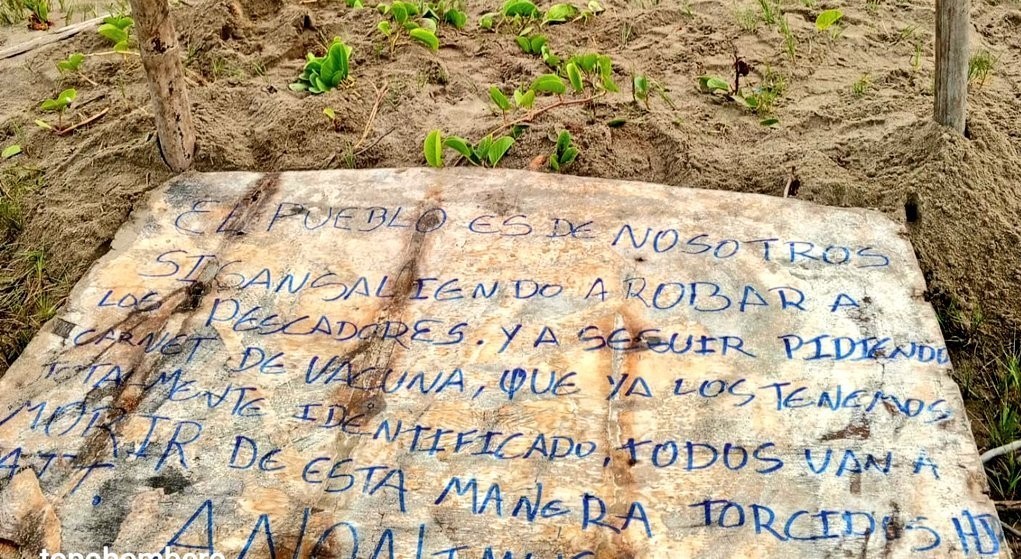 EL PUEBLO ES DE NOSOTROS
SIGANSALIENDO A ROBAR A
LOS PESCADORES. Y A SEGUIR PIDIENDO
CARNET DE VACUNA, QUE YA LOS TENEMOS
TOTALMENTE IDENTIFICADO, TODOS VAN A
MORIR DE ESTA MANERA TORCIDOS HP
ATT.
ANONIMUS